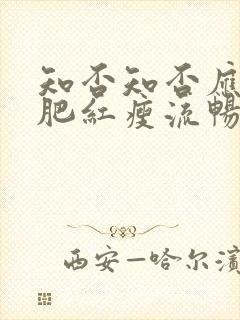 知否知否應
肥紅瘦流暢
西安—哈尔濱